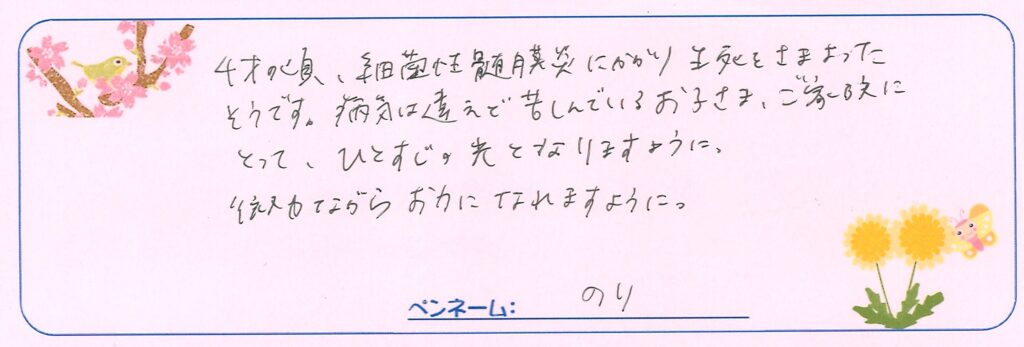 4才の頃、細菌性髄膜炎にかかり生死をさまよった
そうです。病気は違えど苦しんでいるお子さま、ご家族に
とって、ひとすじの光となりますように。
微力ながらお力になれますように。
ペンネーム: のり